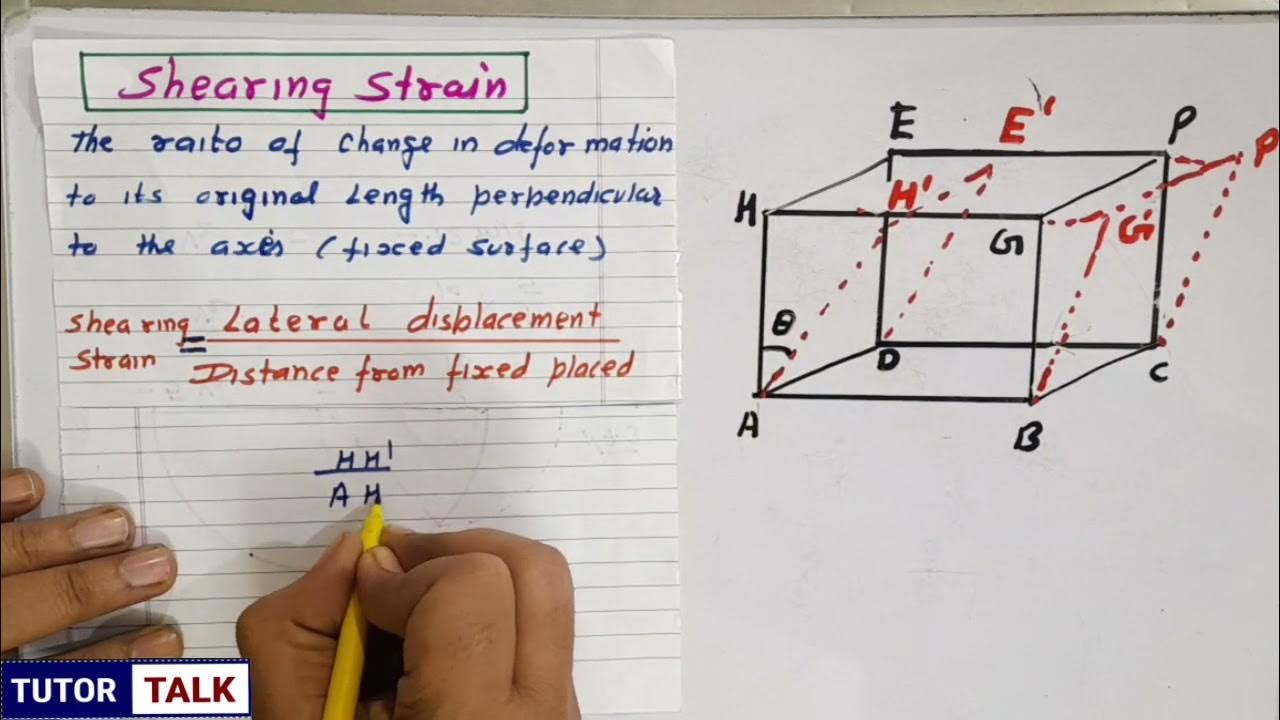 Shearing Strain
The raito of change in deformation
to its original Length perpendicular
to the axis (fixced surface)
Shearing Strain = Lateral displacement
Distance from fixed placed
HH'
AH
E E' P P
H H' G G'
θ
D C
A B
TUTOR TALK